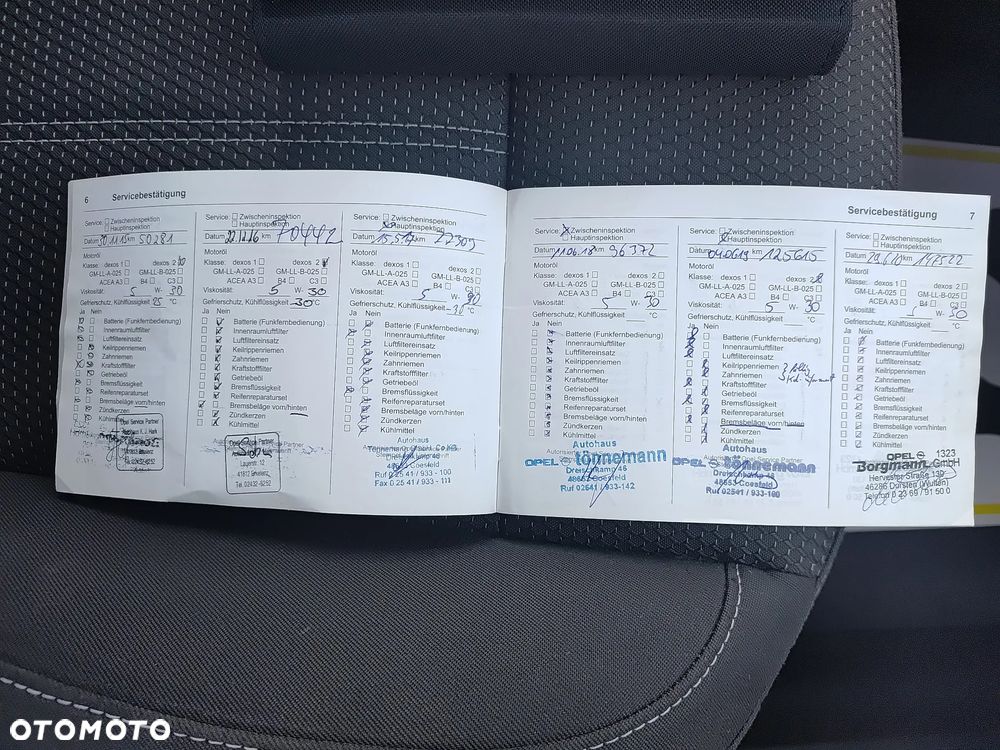 6 Servicebestätigung
Service: Zwischeninspektion
Hauptinspektion
Datum 50281
Motoröl
Klasse: dexos 1 dexos 2
GM-LL-A-025 GM-LL-B-025
ACEA A3 B4 C3
Viskosität: 5 W- 30
Gefrierschutz, Kühlflüssigkeit °C
Ja Nein
Batterie (Funkfernbedienung)
Innenraumluftfilter
Luftfiltereinsatz
Keilrippenriemen
Zahnriemen
Kraftstofffilter
Getriebeöl
Bremsflüssigkeit
Reifenreparaturset
Bremsbeläge vorn/hinten
Zündkerzen
Kühlmittel
Opel Service Partner
Service: Zwischeninspektion
Hauptinspektion
Datum 22.12.16 km 70442
Motoröl
Klasse: dexos 1 dexos 2
GM-LL-A-025 GM-LL-B-025
ACEA A3 B4 C3
Viskosität: 5 W- 30
Gefrierschutz, Kühlflüssigkeit -30 °C
Ja Nein
Batterie (Funkfernbedienung)
Innenraumluftfilter
Luftfiltereinsatz
Keilrippenriemen
Zahnriemen
Kraftstofffilter
Getriebeöl
Bremsflüssigkeit
Reifenreparaturset
Bremsbeläge vorn/hinten
Zündkerzen
Kühlmittel
Opel Service Partner
Lagerstr. 12
Tel. 02432-6252
Service: Zwischeninspektion
Hauptinspektion
Datum km
Motoröl
Klasse: dexos 1 dexos 2
GM-LL-A-025 GM-LL-B-025
ACEA A3 B4 C3
Viskosität: 5 W- 30
Gefrierschutz, Kühlflüssigkeit °C
Ja Nein
Batterie (Funkfernbedienung)
Innenraumluftfilter
Luftfiltereinsatz
Keilrippenriemen
Zahnriemen
Kraftstofffilter
Getriebeöl
Bremsflüssigkeit
Reifenreparaturset
Bremsbeläge vorn/hinten
Zündkerzen
Kühlmittel
Autohaus
48653 Coesfeld
Ruf 0 25 41 / 933 - 100
Fax 0 25 41 / 933 - 111
Servicebestätigung 7
Service: Zwischeninspektion
Hauptinspektion
Datum 11.06.18 km 96372
Motoröl
Klasse: dexos 1 dexos 2
GM-LL-A-025 GM-LL-B-025
ACEA A3 B4 C3
Viskosität: 5 W- 30
Gefrierschutz, Kühlflüssigkeit °C
Ja Nein
Batterie (Funkfernbedienung)
Innenraumluftfilter
Luftfiltereinsatz
Keilrippenriemen
Zahnriemen
Kraftstofffilter
Getriebeöl
Bremsflüssigkeit
Reifenreparaturset
Bremsbeläge vorn/hinten
Zündkerzen
Kühlmittel
Autohaus
OPEL tönnemann
Dreischkamp 46
48653 Coesfeld
Ruf 02541 / 933-142
Service: Zwischeninspektion
Hauptinspektion
Datum 04.06.19 km 125615
Motoröl
Klasse: dexos 1 dexos 2
GM-LL-A-025 GM-LL-B-025
ACEA A3 B4 C3
Viskosität: 5 W- 30
Gefrierschutz, Kühlflüssigkeit °C
Ja Nein
Batterie (Funkfernbedienung)
Innenraumluftfilter
Luftfiltereinsatz
Keilrippenriemen
Zahnriemen
Kraftstofffilter
Getriebeöl
Bremsflüssigkeit
Reifenreparaturset
Bremsbeläge vorn/hinten
Zündkerzen
Kühlmittel
Autohaus
OPEL tönnemann
48653 Coesfeld
Ruf 02541 / 933-100
Service: Zwischeninspektion
Hauptinspektion
Datum km 147522
Motoröl
Klasse: dexos 1 dexos 2
GM-LL-A-025 GM-LL-B-025
ACEA A3 B4 C3
Viskosität: 5 W- 30
Gefrierschutz, Kühlflüssigkeit °C
Ja Nein
Batterie (Funkfernbedienung)
Innenraumluftfilter
Luftfiltereinsatz
Keilrippenriemen
Zahnriemen
Kraftstofffilter
Getriebeöl
Bremsflüssigkeit
Reifenreparaturset
Bremsbeläge vorn/hinten
Zündkerzen
Kühlmittel
OPEL 1323
Borgmann GmbH
Hervester Straße
46286 Dorsten (Wulfen)
Telefon 0 23 69 / 91 50 0
OTOMOTO